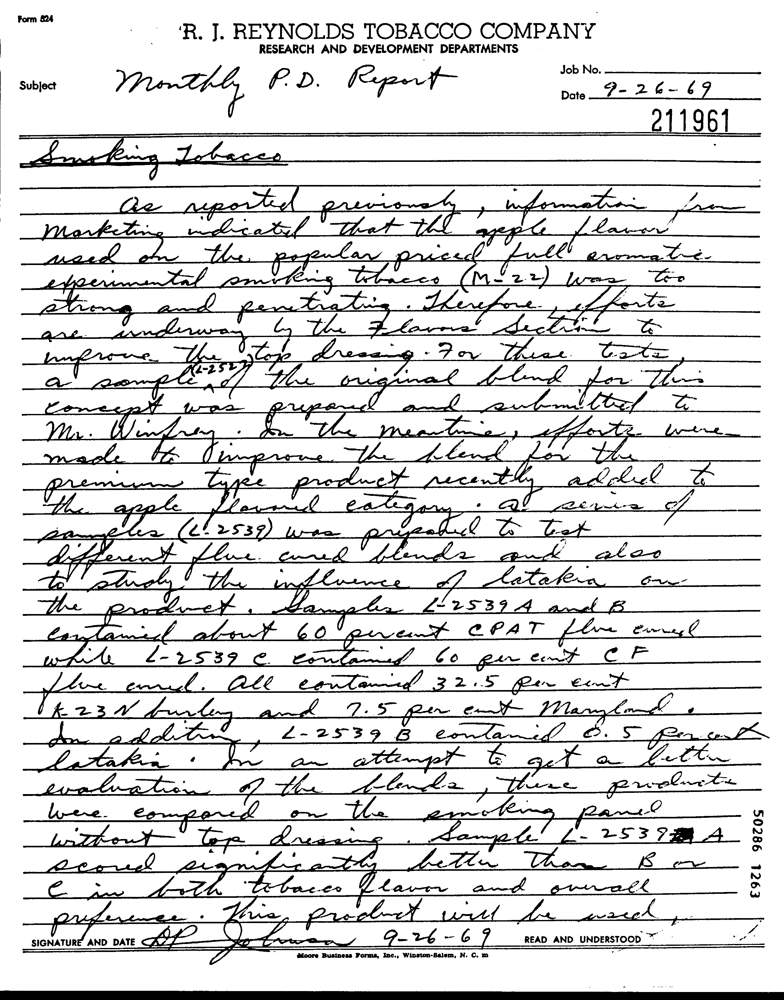 Form 824
R. J. REYNOLDS TOBACCO COMPANY
RESEARCH AND DEVELOPMENT DEPARTMENTS
Subject Monthly P.D. Report
Job No.
Date 9-26-69
211961
Smoking Tobacco
As reported previously, information from
Marketing indicated that the apple flavor
used on the popular priced full aromatic
experimental smoking tobacco (M-22) was too
strong and penetrating. Therefore, efforts
are underway by the Flavors Section to
improve the top dressing. For these tests,
a sample (L-2527) of the original blend for this
concept was prepared and submitted to
Mr. Winfrey. In the meantime, efforts were
made to improve the blend for the
premium type product recently added to
the apple flavored category. A series of
samples (L-2539) was prepared to test
different flue cured blends and also
to study the influence of latakia on
the product. Samples L-2539 A and B
contained about 60 percent CPAT flue cured
while L-2539 C contained 60 per cent CF
flue cured. All contained 32.5 per cent
K-23N burley and 7.5 per cent Maryland.
In addition, L-2539 B contained 0.5 per cent
latakia. In an attempt to get a better
evaluation of the blends, these products
were compared on the smoking panel
without top dressing. Sample L-2539 A
scored significantly better than B or
C in both tobacco flavor and overall
preference. This product will be used,
SIGNATURE AND DATE DP Johnson 9-26-69 READ AND UNDERSTOOD
Moore Business Forms, Inc., Winston-Salem, N. C. m
50286 1263